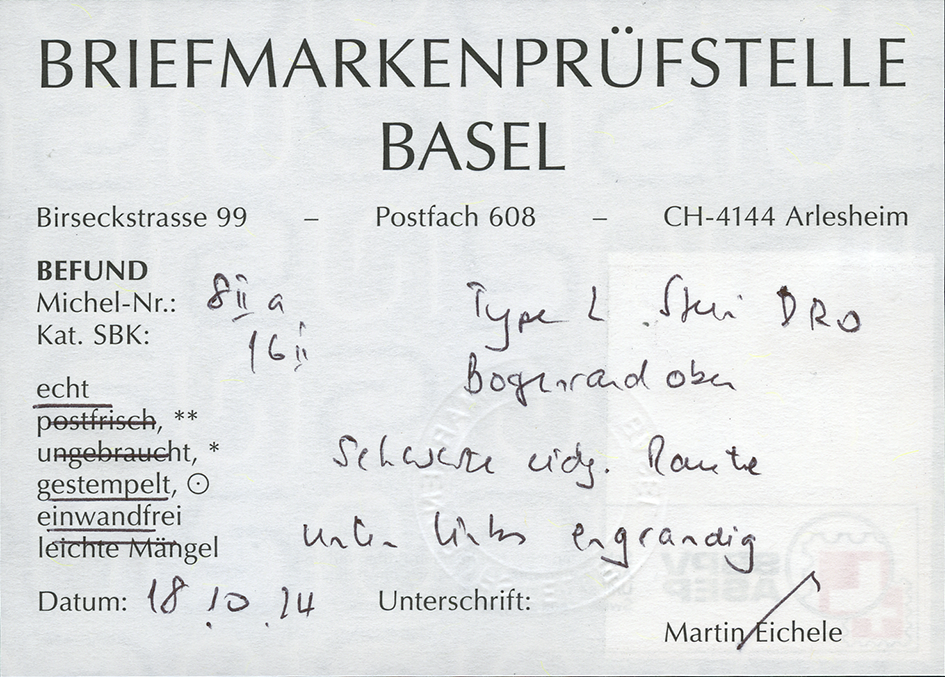 BRIEFMARKENPRÜFSTELLE
BASEL
Birseckstrasse 99 – Postfach 608 – CH-4144 Arlesheim
BEFUND
Michel-Nr.: 8II a
Kat. SBK: 16II
Type 2 Stein DRO
Bogenrand oben
echt
postfrisch, **
ungebraucht, *
Schwarze eidg. Raute
gestempelt, ⊙
einwandfrei
unten links engrandig
leichte Mängel
Datum: 18.10.14 Unterschrift:
Martin Eichele
SBPV
ABEP